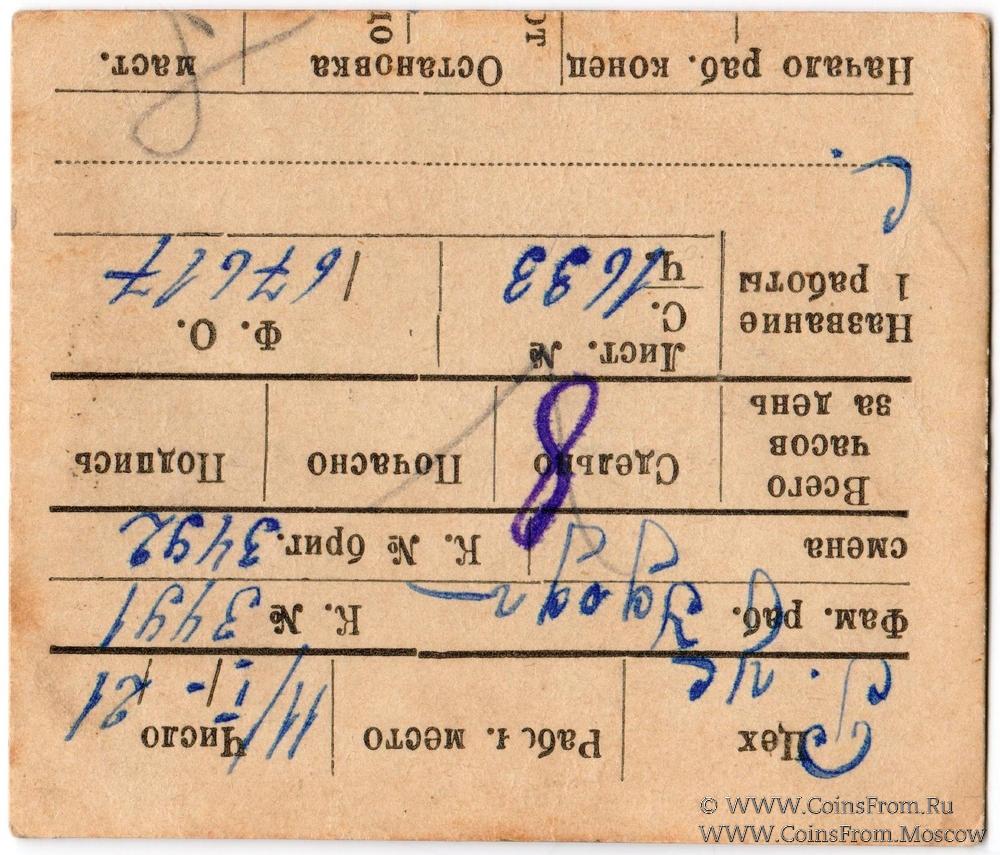 Цех Рабоч. место Число 11/I-21
Фам. раб. К. № 3491
смена К. № бриг. 3492
Всего часов за день Сдельно 8 Почасно Подпись
Название 1 работы Лист. № Ф. О.
С. Ч. 1633 167617
Начало раб. конец Остановка маст.
от до
© WWW.CoinsFrom.Ru
WWW.CoinsFrom.Moscow